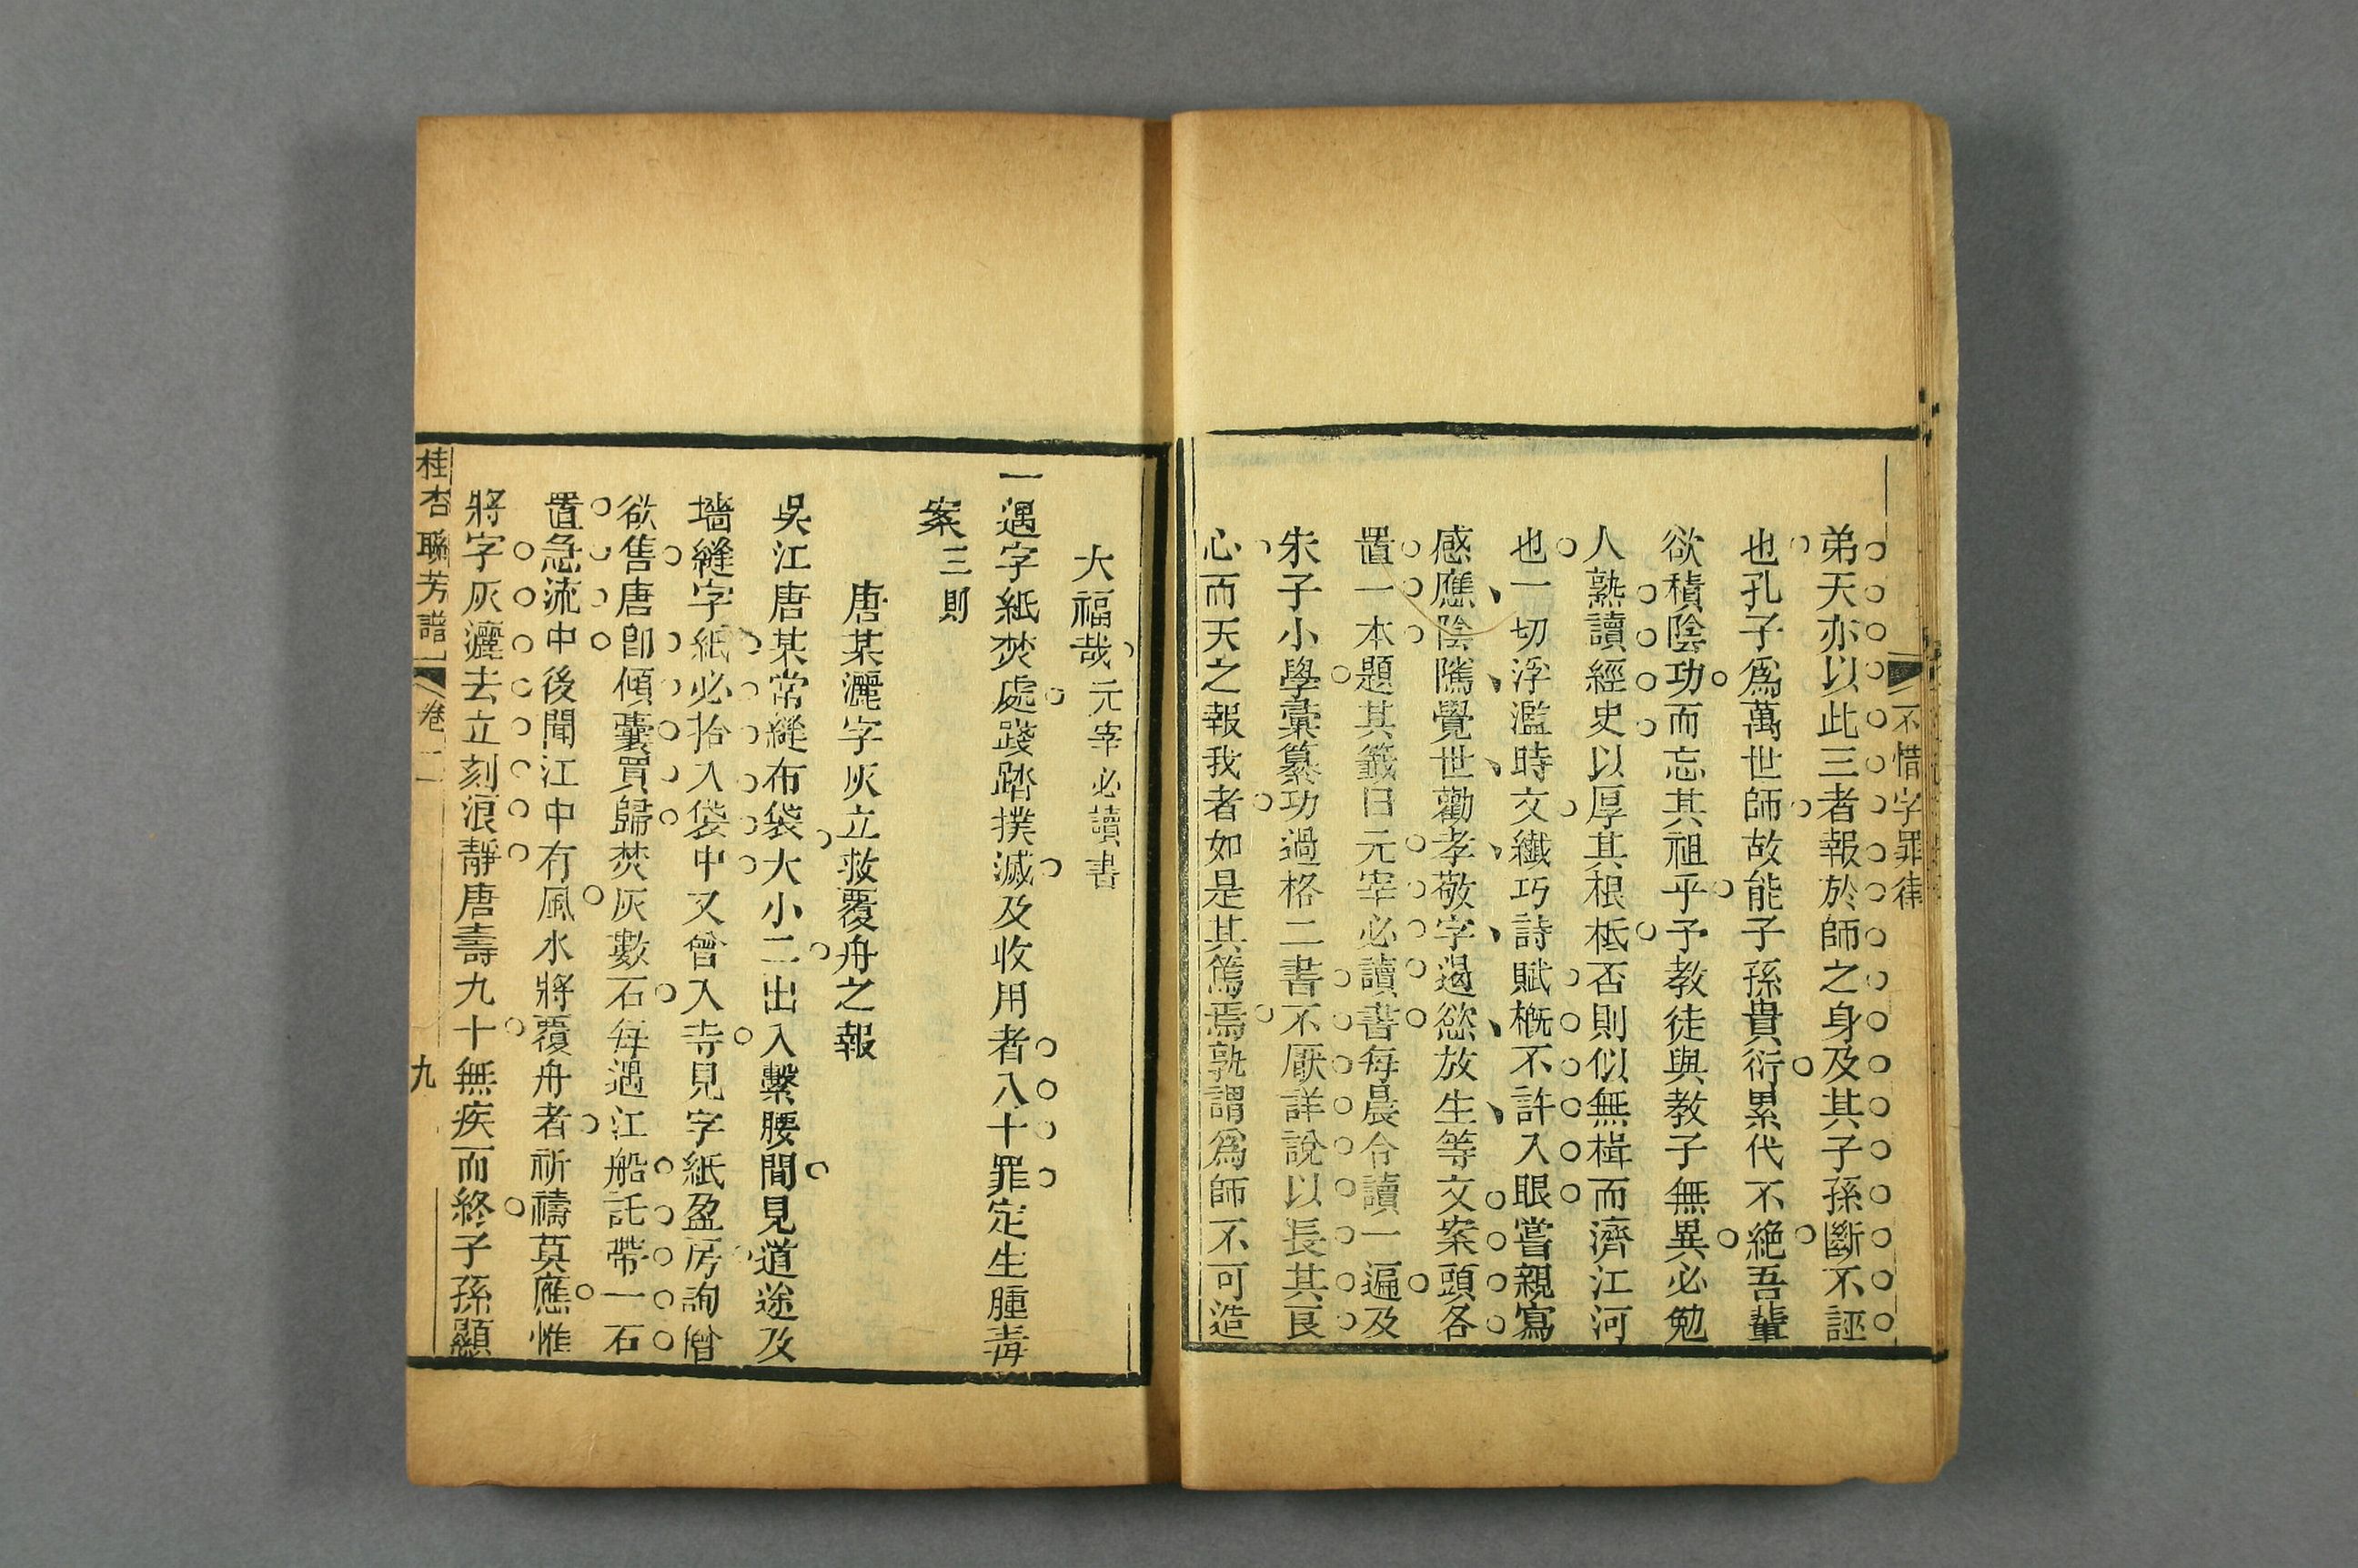 不惜字罪律
弟天亦以此三者報於師之身及其子孫斷不誣
也孔子爲萬世師故能子孫貴衍累代不絶吾輩
欲積陰功而忘其祖乎予教徒與教子無異必勉
人熟讀經史以厚其根柢否則似無楫而濟江河
也一切浮濫時文纖巧詩賦槪不許入眼嘗親寫
感應陰隲覺世勸孝敬字遏慾放生等文案頭各
置一本題其籤曰元宰必讀書每晨令讀一遍及
朱子小學彙纂功過格二書不厭詳說以長其良
心而天之報我者如是其篤焉孰謂爲師不可造
大福哉元宰必讀書
一遇字紙焚處踐踏撲滅及收用者八十罪定生腫毒
案三則
唐某灑字灰立救覆舟之報
吳江唐某常縫布袋大小二出入繫腰間見道途及
墻縫字紙必拾入袋中又曾入寺見字紙盈房詢僧
欲售唐卽傾囊買歸焚灰數石每遇江船託帶一石
置急流中後聞江中有風水將覆舟者祈禱莫應惟
將字灰灑去立刻浪靜唐壽九十無疾而終子孫顯
桂杏聯芳譜 卷二 九